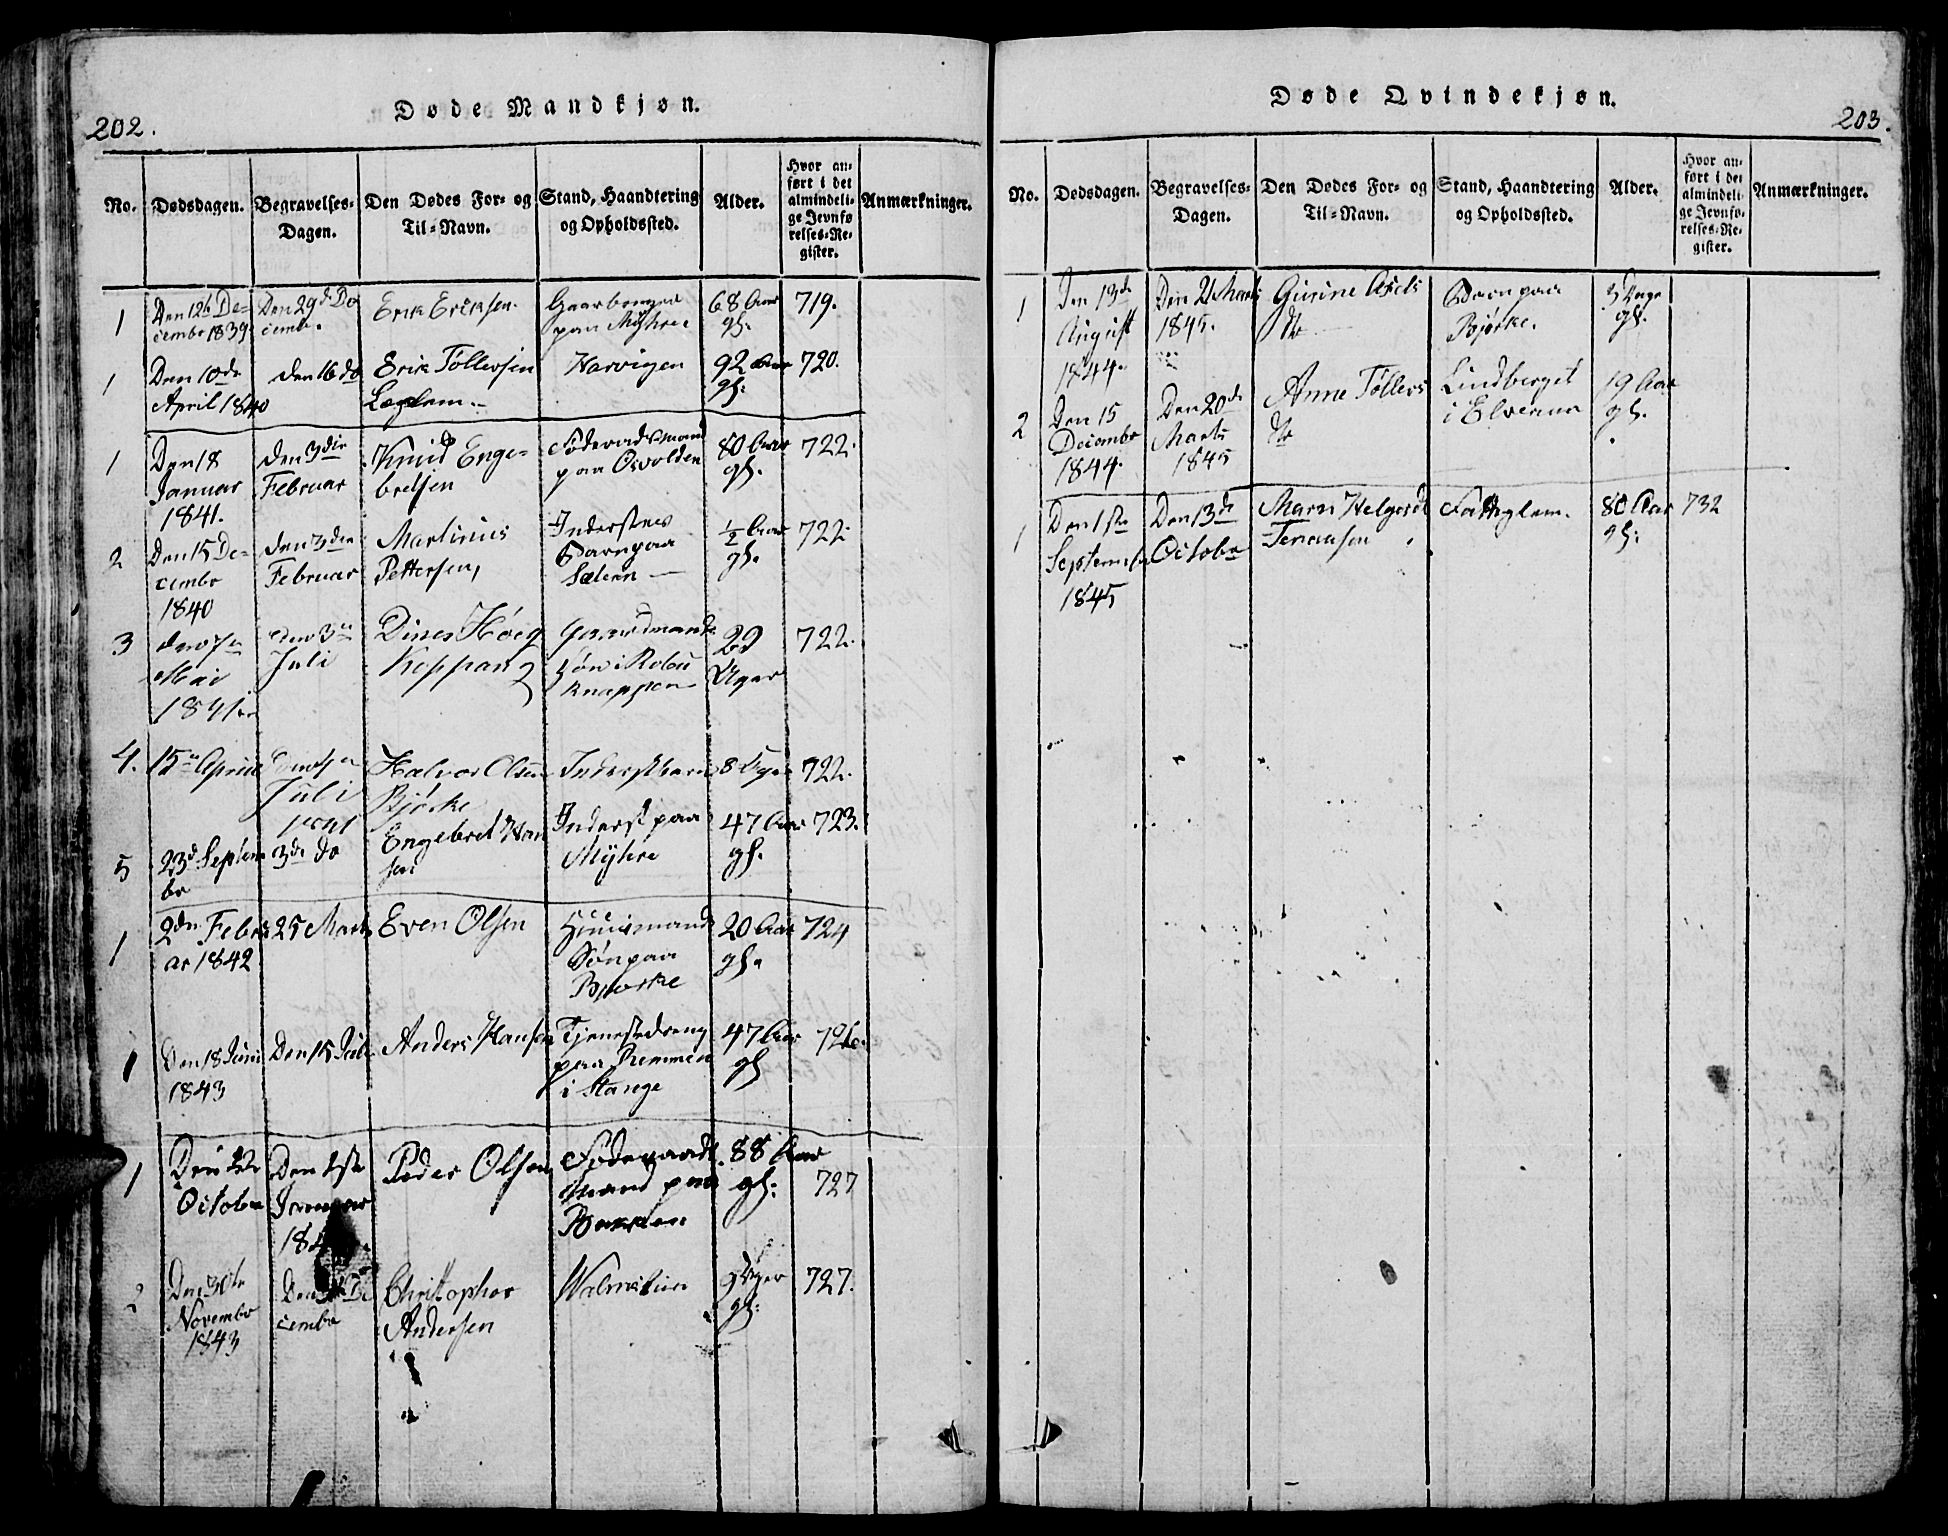 202.
Døde Mandkjøn.
No. Dødsdagen. Begravelses-Dagen. Den Dødes For- og Til-Navn. Stand, Haandtering og Opholdssted. Alder. Hvor anført i det almindelige Jevnførelses-Register. Anmærkninger.
1 Den 12te December 1839 Den 29d December Erik Eriksen paa Myhre 68 Aar gl. 719.
1 Den 10de April 1840 den 16 do Erik Töllevsen Læglem Harvigen 92 Aar gl. 720.
1 Den 18 Januar 1841. den 3die Februar Knud Engebretsen Föderaadsmand paa Osvolden 80 Aar gl. 722.
2 Den 15 December 1840 den 3die Februar Martinus Pettersen Inderstes Barn paa 1/2 Aar gl. 722
3 den 7e Mai 1841 den 3e Juli Dines Höeg Koppang Gaardmands Sön i knappen 29 Uger 722.
4. 15e April Juli Halvor Olsen Bjørke Inderstbarn 8 Uger 722.
5 23d September 3die do Engebret Hansen Inderst paa Myhre 47 Aar gl. 723.
1 2den Februar 1842 25 Marts Even Olsen Huusmands Sön paa Bjørke 20 Aar gl. 724
1 Den 18 Juni 1843 Den 15 Juli Anders Hansen Tjenestedreng paa Remmen i Stange 47 Aar gl. 726.
1 October Den 1ste Januar Peder Olsen Föderaadsmand paa Bakken 88 Aar gl: 727
2 Den 30te November 1843 December Christopher Andersen 9 Uger gl: 727.
203.
Døde Qvindekjøn.
No. Dødsdagen. Begravelses-Dagen. Den Dødes For- og Til-Navn. Stand, Haandtering og Opholdssted. Alder. Hvor anført i det almindelige Jevnførelses-Register. Anmærkninger.
1 Den 13de August 1844. Den 21 Marts 1845. Gunine Axels Dtr Barn paa Bjørke. 3 Uger gl.
2 Den 15 December 1844. Den 20de Marts 1845 Anne Töllevs Dtr Lindberget i Elverum 19 Aar gl.
1 Den 1ste September 1845 Den 13de October Maren Helgesdt Fattiglem. 80 Aar gl: 732